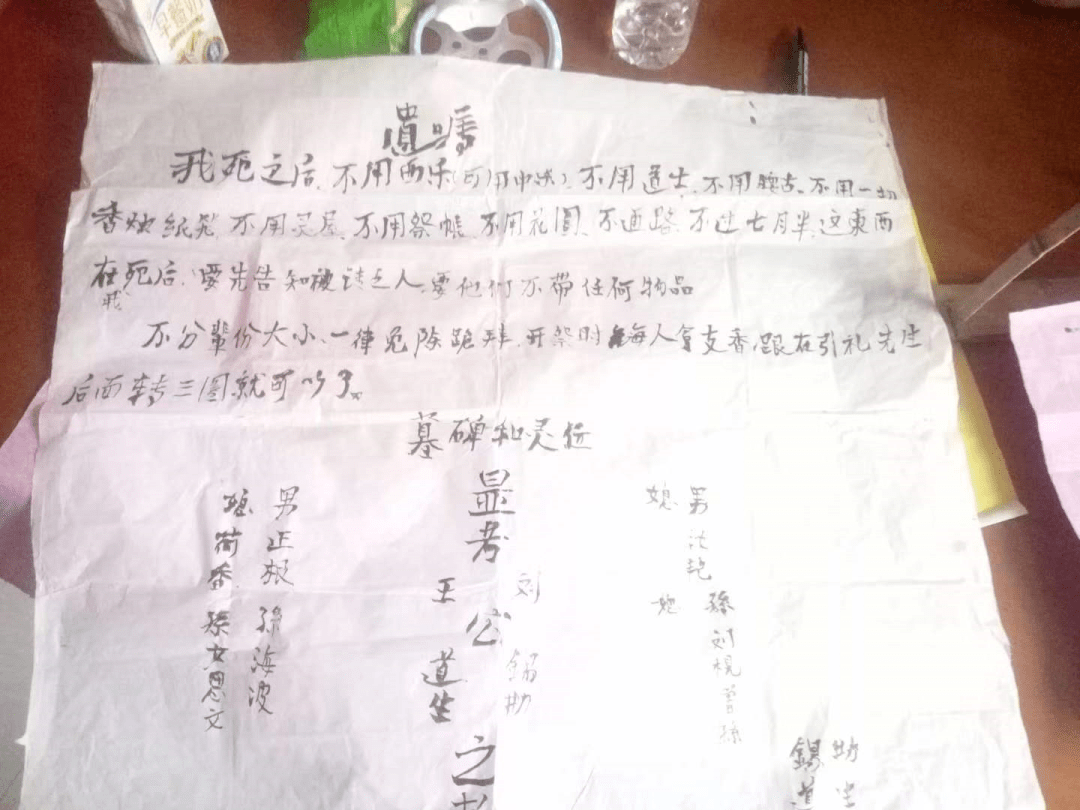 遺嘱
我死之后、不用西乐(可用中乐)、不用道士、不用腰古、不用一切
香烛紙炮、不用灵屋、不用祭帳、不用花圈、不通路、不过七月半、这東西
在我死后,要先告知被请之人,要他们不带任何物品
不分輩份大小、一律免除跪拜、开祭时每人拿支香,跟在引礼先生
后面转三圈就可以了。
墓碑和灵位
显考
刘
王
公
錫
道生
之
男
媳
孫
刘
男正根
孫海波
媳荷香
孫女思文
錫
道生
早餐奶